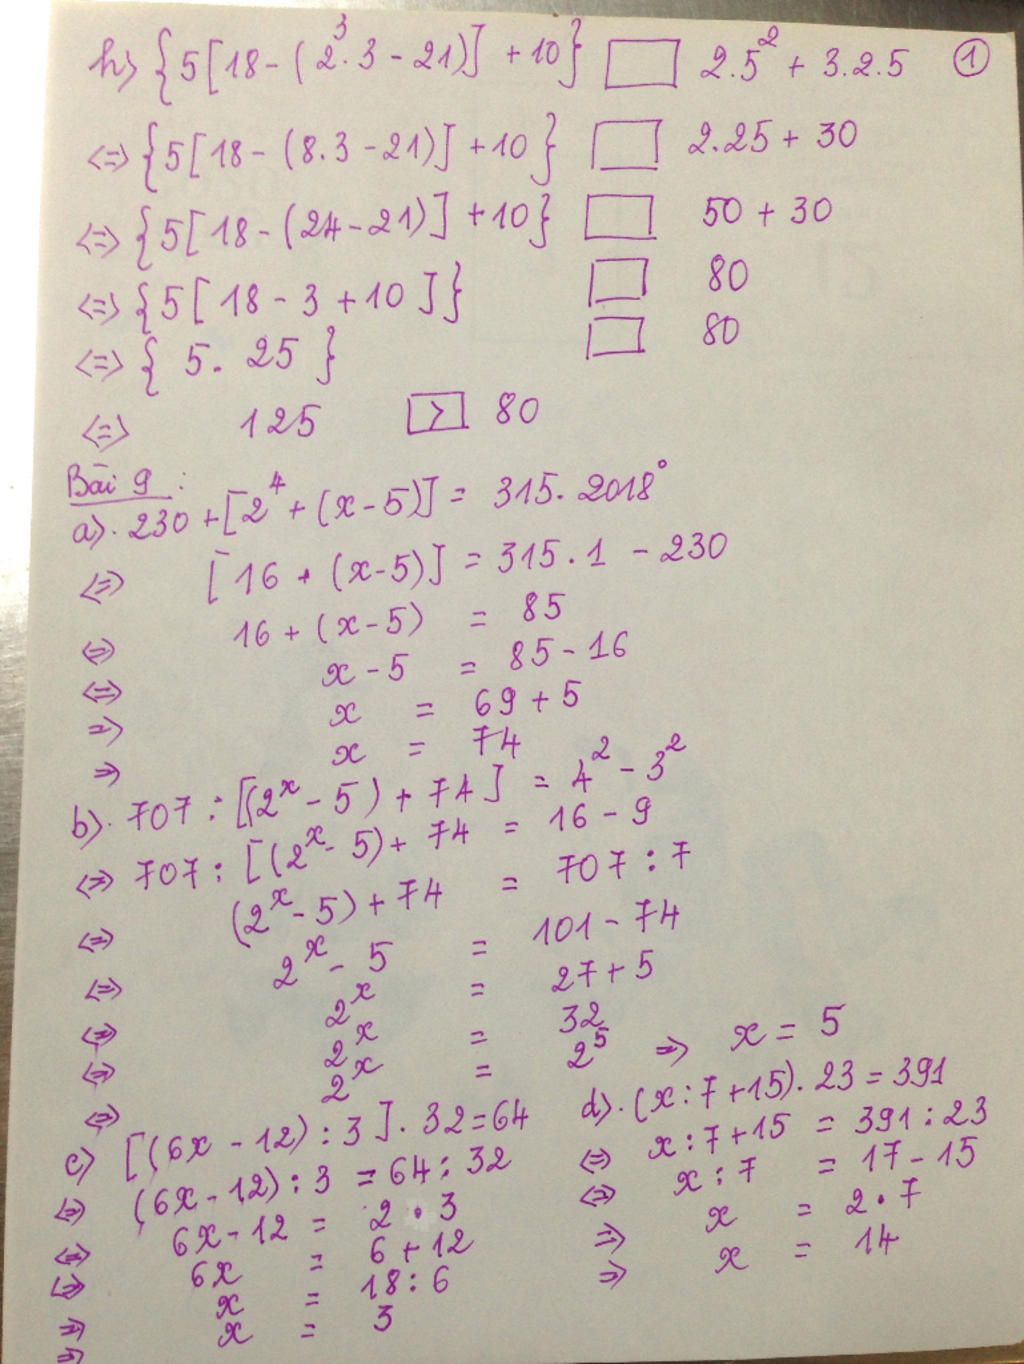 h) {5[18 - (2³.3 - 21)] + 10} □ 2.5² + 3.2.5 ①
<=> {5[18 - (8.3 - 21)] + 10} □ 2.25 + 30
<=> {5[18 - (24 - 21)] + 10} □ 50 + 30
<=> {5[18 - 3 + 10]} □ 80
<=> {5. 25} □ 80
<=> 125 > 80
Bài 9 :
a). 230 + [2⁴ + (x - 5)] = 315. 2018°
<=> [16 + (x - 5)] = 315.1 - 230
<=> 16 + (x - 5) = 85
<=> x - 5 = 85 - 16
=> x = 69 + 5
=> x = 74
b). 707 : [(2ˣ - 5) + 74] = 4² - 3²
<=> 707 : [(2ˣ - 5) + 74 = 16 - 9
<=> (2ˣ - 5) + 74 = 707 : 7
<=> 2ˣ - 5 = 101 - 74
<=> 2ˣ = 27 + 5
<=> 2ˣ = 32
<=> 2ˣ = 2⁵ => x = 5
c) [(6x - 12) : 3]. 32 = 64
<=> (6x - 12) : 3 = 64 : 32
<=> 6x - 12 = 2 . 3
<=> 6x = 6 + 12
=> x = 18 : 6
=> x = 3
d). (x : 7 + 15). 23 = 391
<=> x : 7 + 15 = 391 : 23
<=> x : 7 = 17 - 15
=> x = 2 . 7
=> x = 14